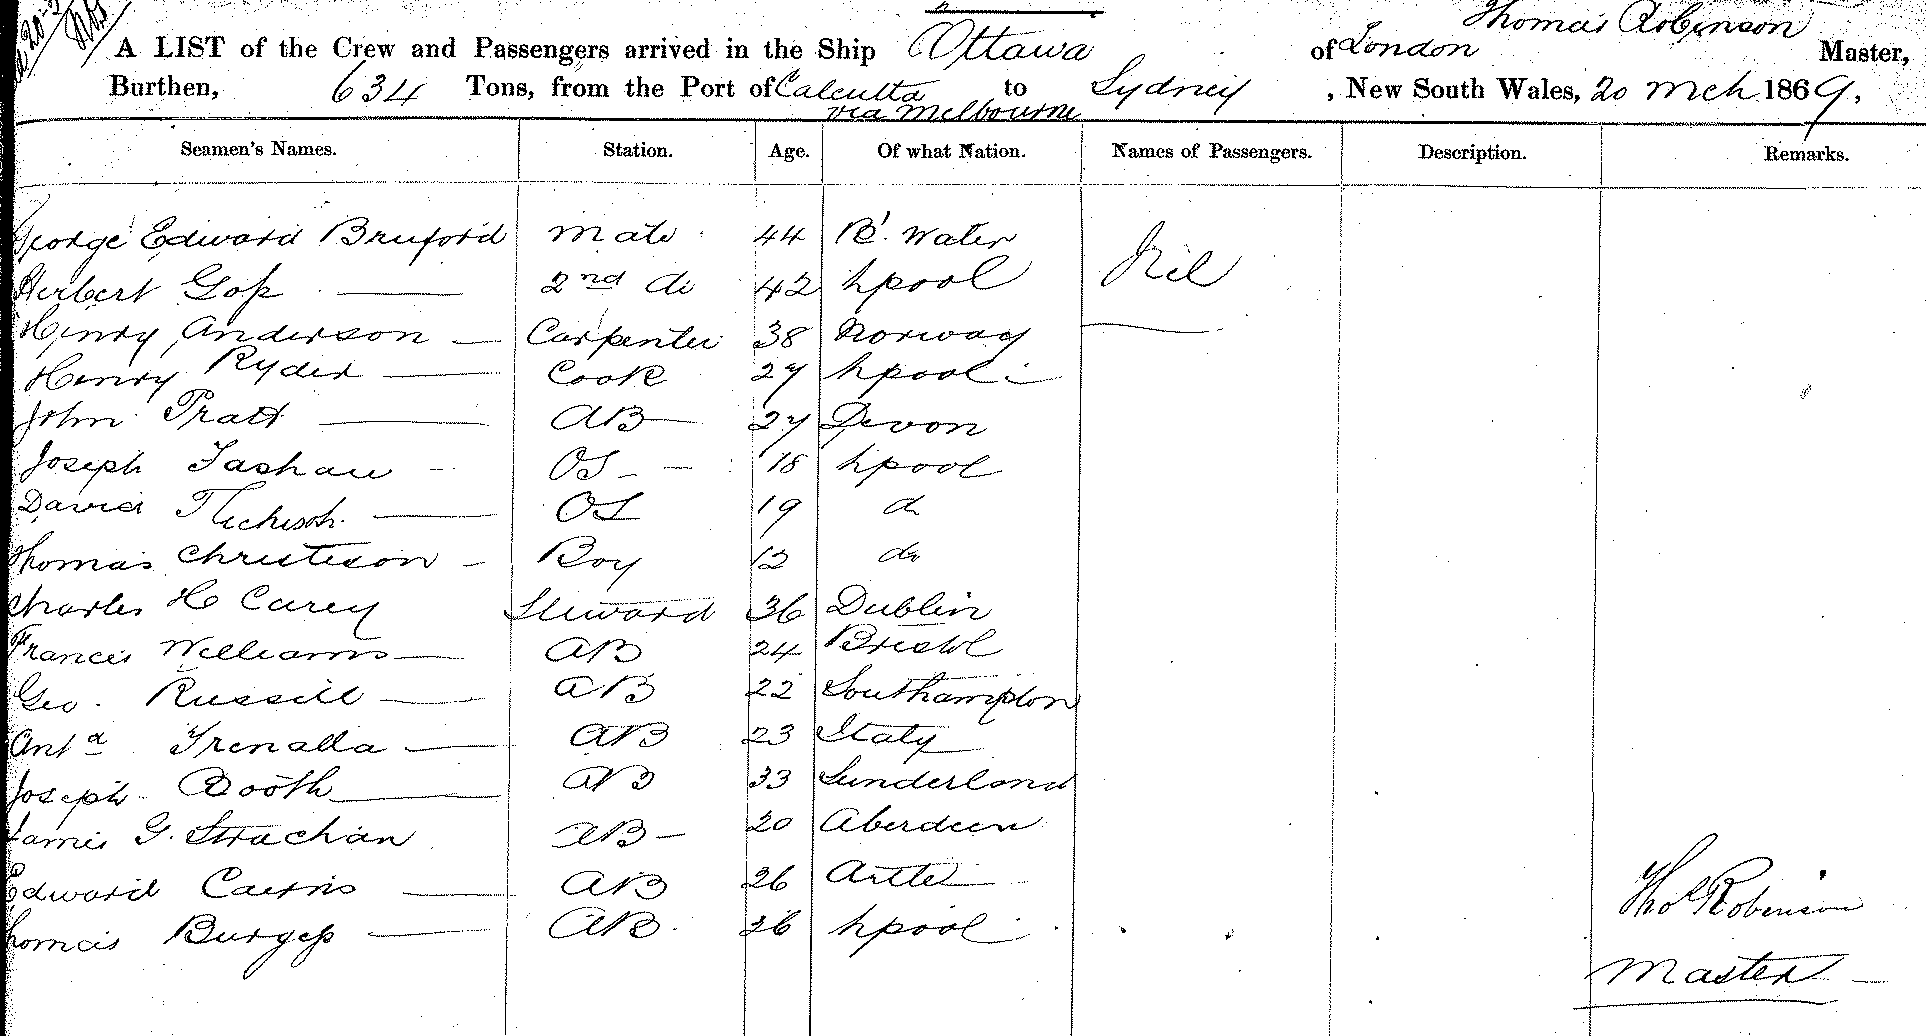 Thomas Robinson
A LIST of the Crew and Passengers arrived in the Ship Ottawa of London Master,
Burthen, 634 Tons, from the Port of Calcutta to Sydney, New South Wales, 20 Mch 1869,
via Melbourne
Seamen's Names. Station. Age. Of what Nation. Names of Passengers. Description. Remarks.
George Edward Bruford Mate 44 B. Water Nil
Herbert Goss 2nd do 42 Lpool
Henry Anderson Carpenter 38 Norway
Henry Ryder Cook 27 Lpool
John Pratt AB 27 Devon
Joseph OS 18 Lpool
David OS 19 do
Thomas Christeson Boy 12 do
Charles H Carey Steward 36 Dublin
Francis Williams AB 24 Bristol
Geo. Russell AB 22 Southampton
Anta Trenalla AB 23 Italy
Joseph Booth AB 33 Sunderland
James G. Strachan AB 20 Aberdeen
Edward Cairns AB 26
Thomas Burgess AB 26 Lpool
Thos Robinson
Master